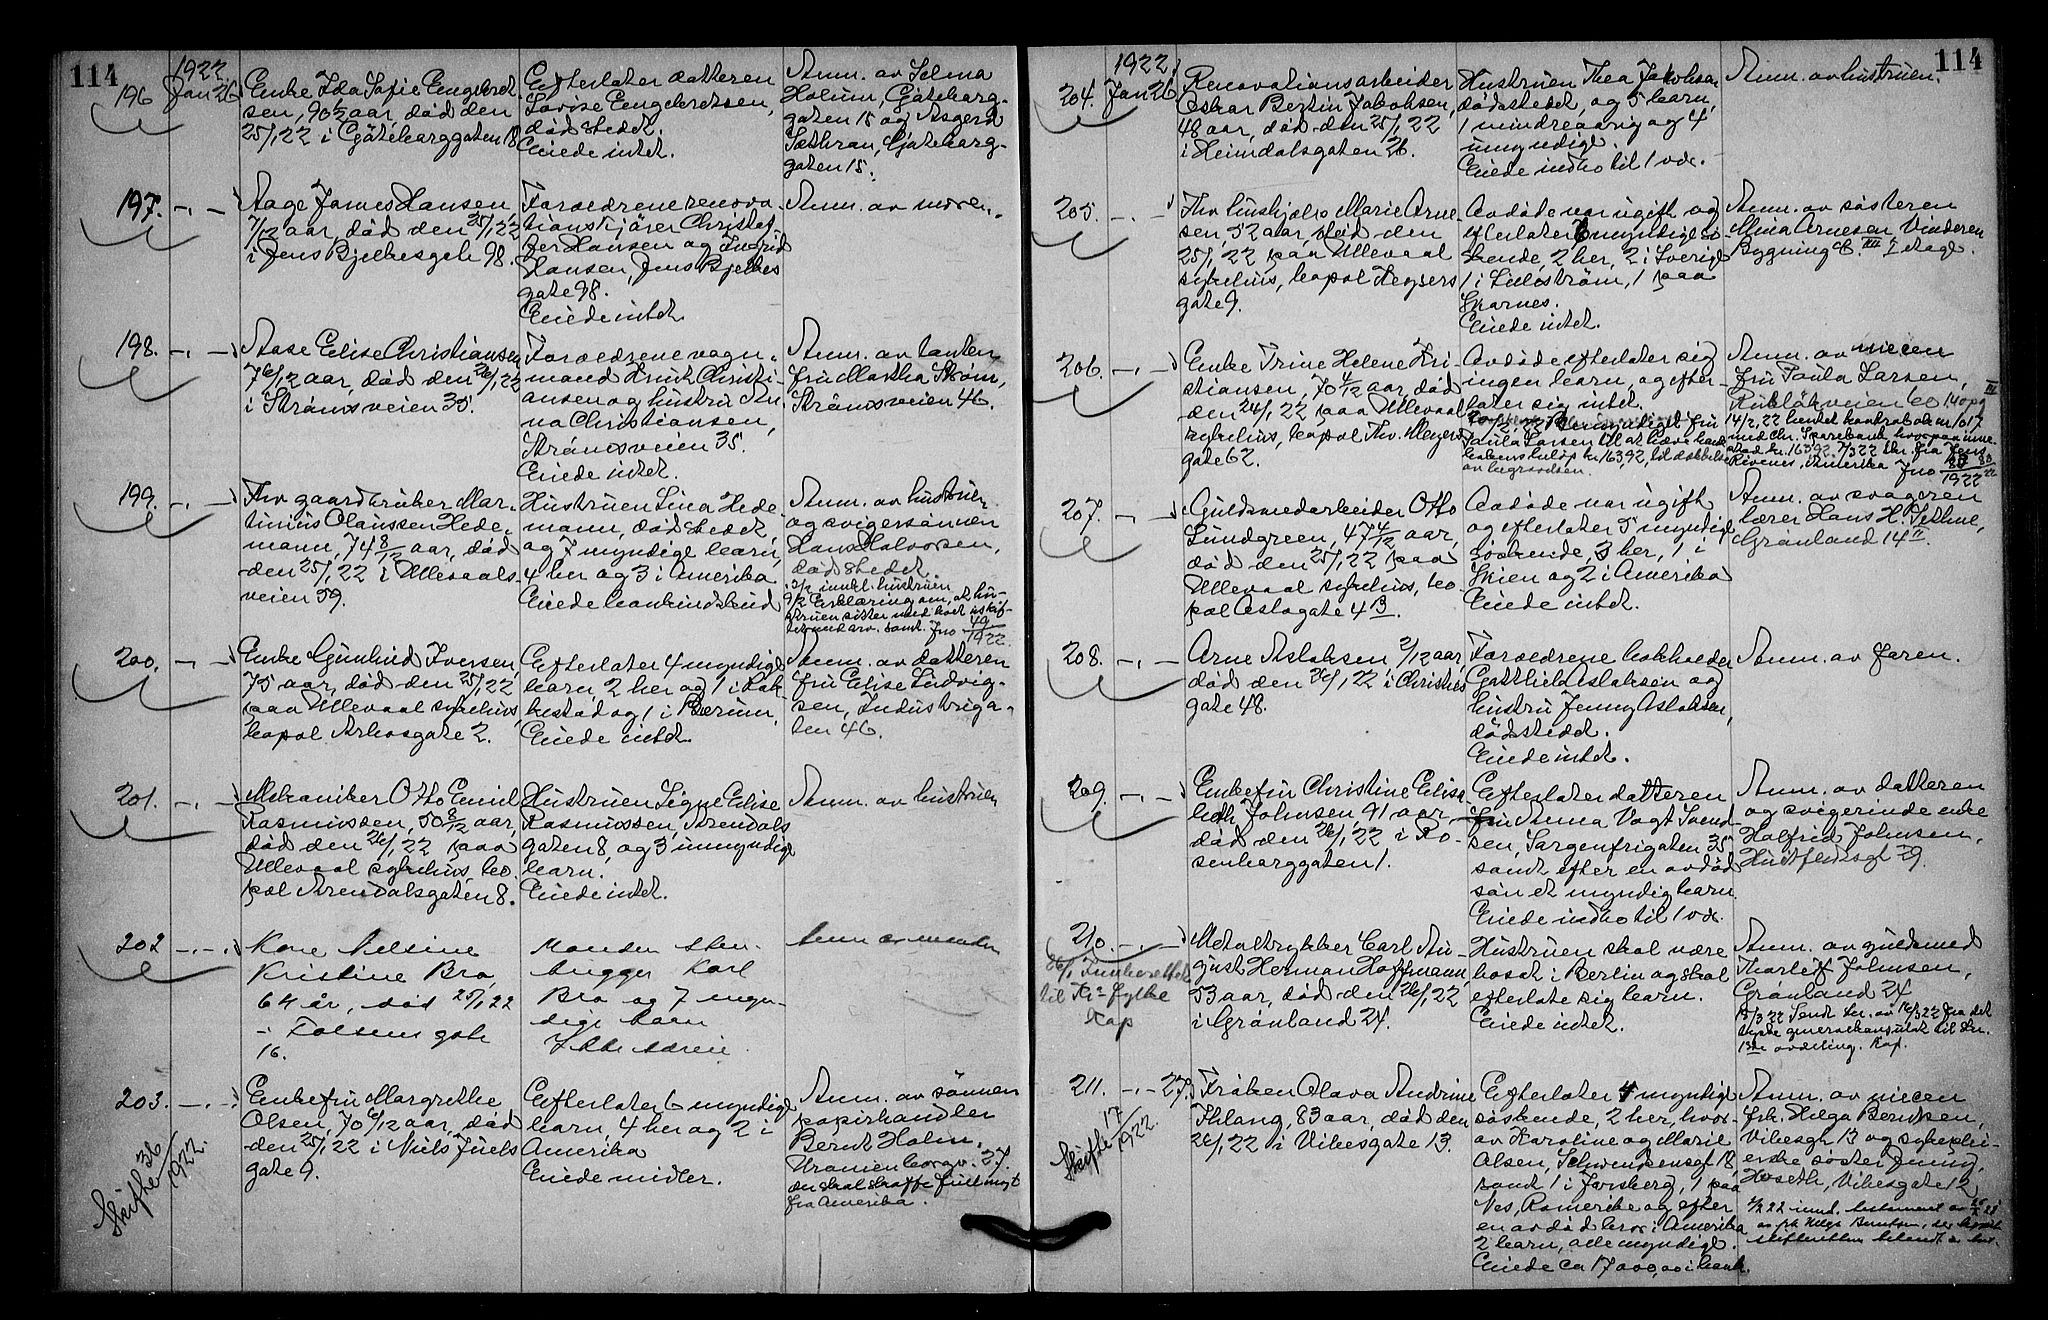 114
1922
196 Jan 26
Enke Ida Sofie Engebret
sen, 90 1/2 aar, død den
25/1 22 i Göteborggaten 18
Efterlater datteren
Lovise Engebretsen,
dødstedet.
Eiede intet.
Anm. av Selma
Holum, Göteborg-
gaten 15 og Asgerd
Sæthran, Göteborg-
gaten 15.
197. -„-
Aage James Hansen,
7/12 aar, død den 25/1 22
i Jens Bjelkesgate 98.
Forældrene renova-
tionskjører Christof-
fer Hansen og Ingrid
Hansen, Jens Bjelkes
gate 98.
Eiede intet
Anm. av moren.
198. -„-
Aase Elise Christiansen
7 6/12 aar, død den 26/1 22
i Strömsveien 35.
Forældrene vogn-
mand Christi-
ansen og hustru An-
na Christiansen,
Strömsveien 35.
Eiede intet
Anm. av tanten
fru Martha Strøm,
Strömsveien 46.
199. -„-
Fhv. gaardbruker Mar-
tinius Olaussen Hede-
mann, 74 8/12 aar, død
den 25/1 22 i Ullevaals-
veien 59.
Hustruen Lina Hede
mann, dødstedet,
og 7 myndige barn,
4 her og 3 i Amerika
Eiede
Anm. av hustruen
og svigersønnen
Hans Halvorsen,
dødstedet
hustruen
9/2 Erklæring om, at hu-
struen sitter
Jno 49/1922
200. -„-
Enke Gunhild Iversen,
75 aar, død den 25/1 22
paa Ullevaal sykehus,
bopæl Arbosgate 2.
Efterlater 4 myndige
barn 2 her og 1 i
og 1 i Bærum.
Eiede intet
Anm. av datteren
fru Elise Ludvig-
sen, Industriga-
ten 46.
201. -„-
Mekaniker Otto Emil
Rasmussen, 50 8/12 aar,
død den 26/1 22 paa
Ullevaal sykehus, bo-
pæl Arendalsgaten 8.
Hustruen Signe Elise
Rasmussen, Arendals
gaten 8, og 3 umyndige
barn.
Eiede intet.
Anm. av hustruen
202 -„-
Kone Nelsine
Kristine Bro,
64 år, død 25/1 22
i
16.
Manden sten-
hugger Karl
Bro og 7 myn-
dige barn
Anm av manden
203. -„-
Enkefru Margrethe
Olsen, 70 6/12 aar, død
den 25/1 22 i Niels Juels
gate 9.
Skifte 36/1922.
Efterlater 6 myndige
barn, 4 her og 2 i
Amerika
Eiede midler.
Anm. av sönnen
papirhandler
Bernt Holm,
Uranienborgv. 27.
der skal skaffe fuldmagt
fra Amerika.
114
1922
204. Jan 26
Renovationsarbeider
Oskar Bertin Jakobsen,
48 aar, død den 25/1 22
i Heimdalsgaten 26.
Hustruen Thea Jakobsen
dødstedet, og 5 barn,
1 mindreaarig og 4
umyndige.
Eiede indbo til 1 vox.
Anm. av hustruen.
205. -„-
Fhv. hushjelp Marie Arne-
sen, 52 aar, død den
25/1 22 paa Ullevaal
sykehus, bopæl Keysers
gate 9.
Avdøde var ugift og
efterlater 6 myndige sö-
skende, 2 her, 2 i Sverige
1 i Lillestrøm, 1 paa
Skarnes.
Eiede intet.
Anm. av søsteren
Alma Arnesen, Vinderen
Bygning
206. -„-
Enke Trine Helene Kri
stiansen, 70 4/12 aar, død
den 24/1 22 paa Ullevaal
sykehus, bopæl Thv. Meyers
gate 62.
Avdøde efterlater sig
ingen barn, og efter-
later sig intet.
fru
Paula Larsen til at hæve
kr 163,92, til dækkelse
av begravelsen.
Anm. av niecen
fru Paula Larsen,
14/2 22
med Chr. Sparebank
kr. 163,92. 7/3 22 skr. fra Jens
Amerika Jno
1922
207. -„-
Guldsmedarbeider Otto
Lundgreen, 47 4/12 aar,
død den 25/1 22 paa
Ullevaal sykehus, bo-
pæl Oslogate 4 B.
Avdøde var ugift
og efterlater 5 myndige
söskende, 3 her, 1 i
Skien og 2 i Amerika
Eiede intet.
Anm. av svogeren
lærer Hans H.
Grønland 14 II.
208. -„-
Arne Aslaksen 2/12 aar,
død den 26/1 22 i Christies
gate 48.
Forældrene bokholder
Gottlieb Aslaksen og
hustru Jenny Aslaksen,
dødstedet.
Eiede intet.
Anm. av faren.
209. -„-
Enkefru Christine Elisa-
beth Johnsen, 91 aar
død den 26/1 22 i Ro-
senborggaten 1.
Efterlater datteren
fru Anna Vogt Svend-
sen, Sorgenfrigaten 35
samt efter en avdød
søn et myndig barn
Eiede indbo til 1 vox.
Anm. av datteren
og svigerinde enke
Halfrid Johnsen,
Huitfeldtsgt 29.
210. -„-
26/1
til fylke
Kap
Metaltrykker Carl Au-
gust Herman Hoffmann,
53 aar, død den 26/1 22
i Grønland 24.
Hustruen skal være
bosat i Berlin og skal
efterlate sig barn.
Eiede intet.
Anm. av guldsmed
Thorleif Johnsen,
Grønland 24
fra det
tyske generalkonsulat til
13de avdeling. Kap.
211. -„- 27.
Skifte 17/1922.
Frøken Olava Andrine
Ihlang, 83 aar, død den
26/1 22 i Vibesgate 13.
Efterlater 4 myndige
søskende, 2 her, hvor-
av Karoline og Marie
Olsen, Schwensensgt 18,
samt 1 i Jarsberg, 1 paa
Nes, Romerike og efter
en avdød bror i Amerika
2 barn, alle myndige.
Eiede ca 17 000,00 i bank.
Anm. av niecen
frk. Helga Berntsen,
Vibesgt 13 og sykeplei-
erske søster Jenny
Hoseth, Vibesgate 12
testament av
av frk Helga Berntsen,